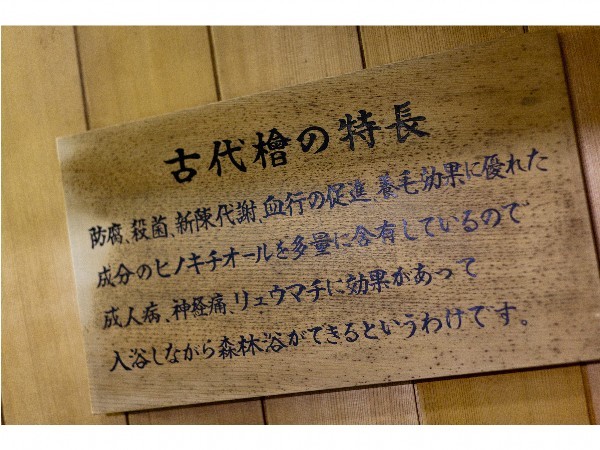 古代檜の特長
防腐、殺菌、新陳代謝、血行の促進、養毛効果に優れた
成分のヒノキチオールを多量に含有しているので
成人病、神経痛、リュウマチに効果があって
入浴しながら森林浴ができるというわけです。